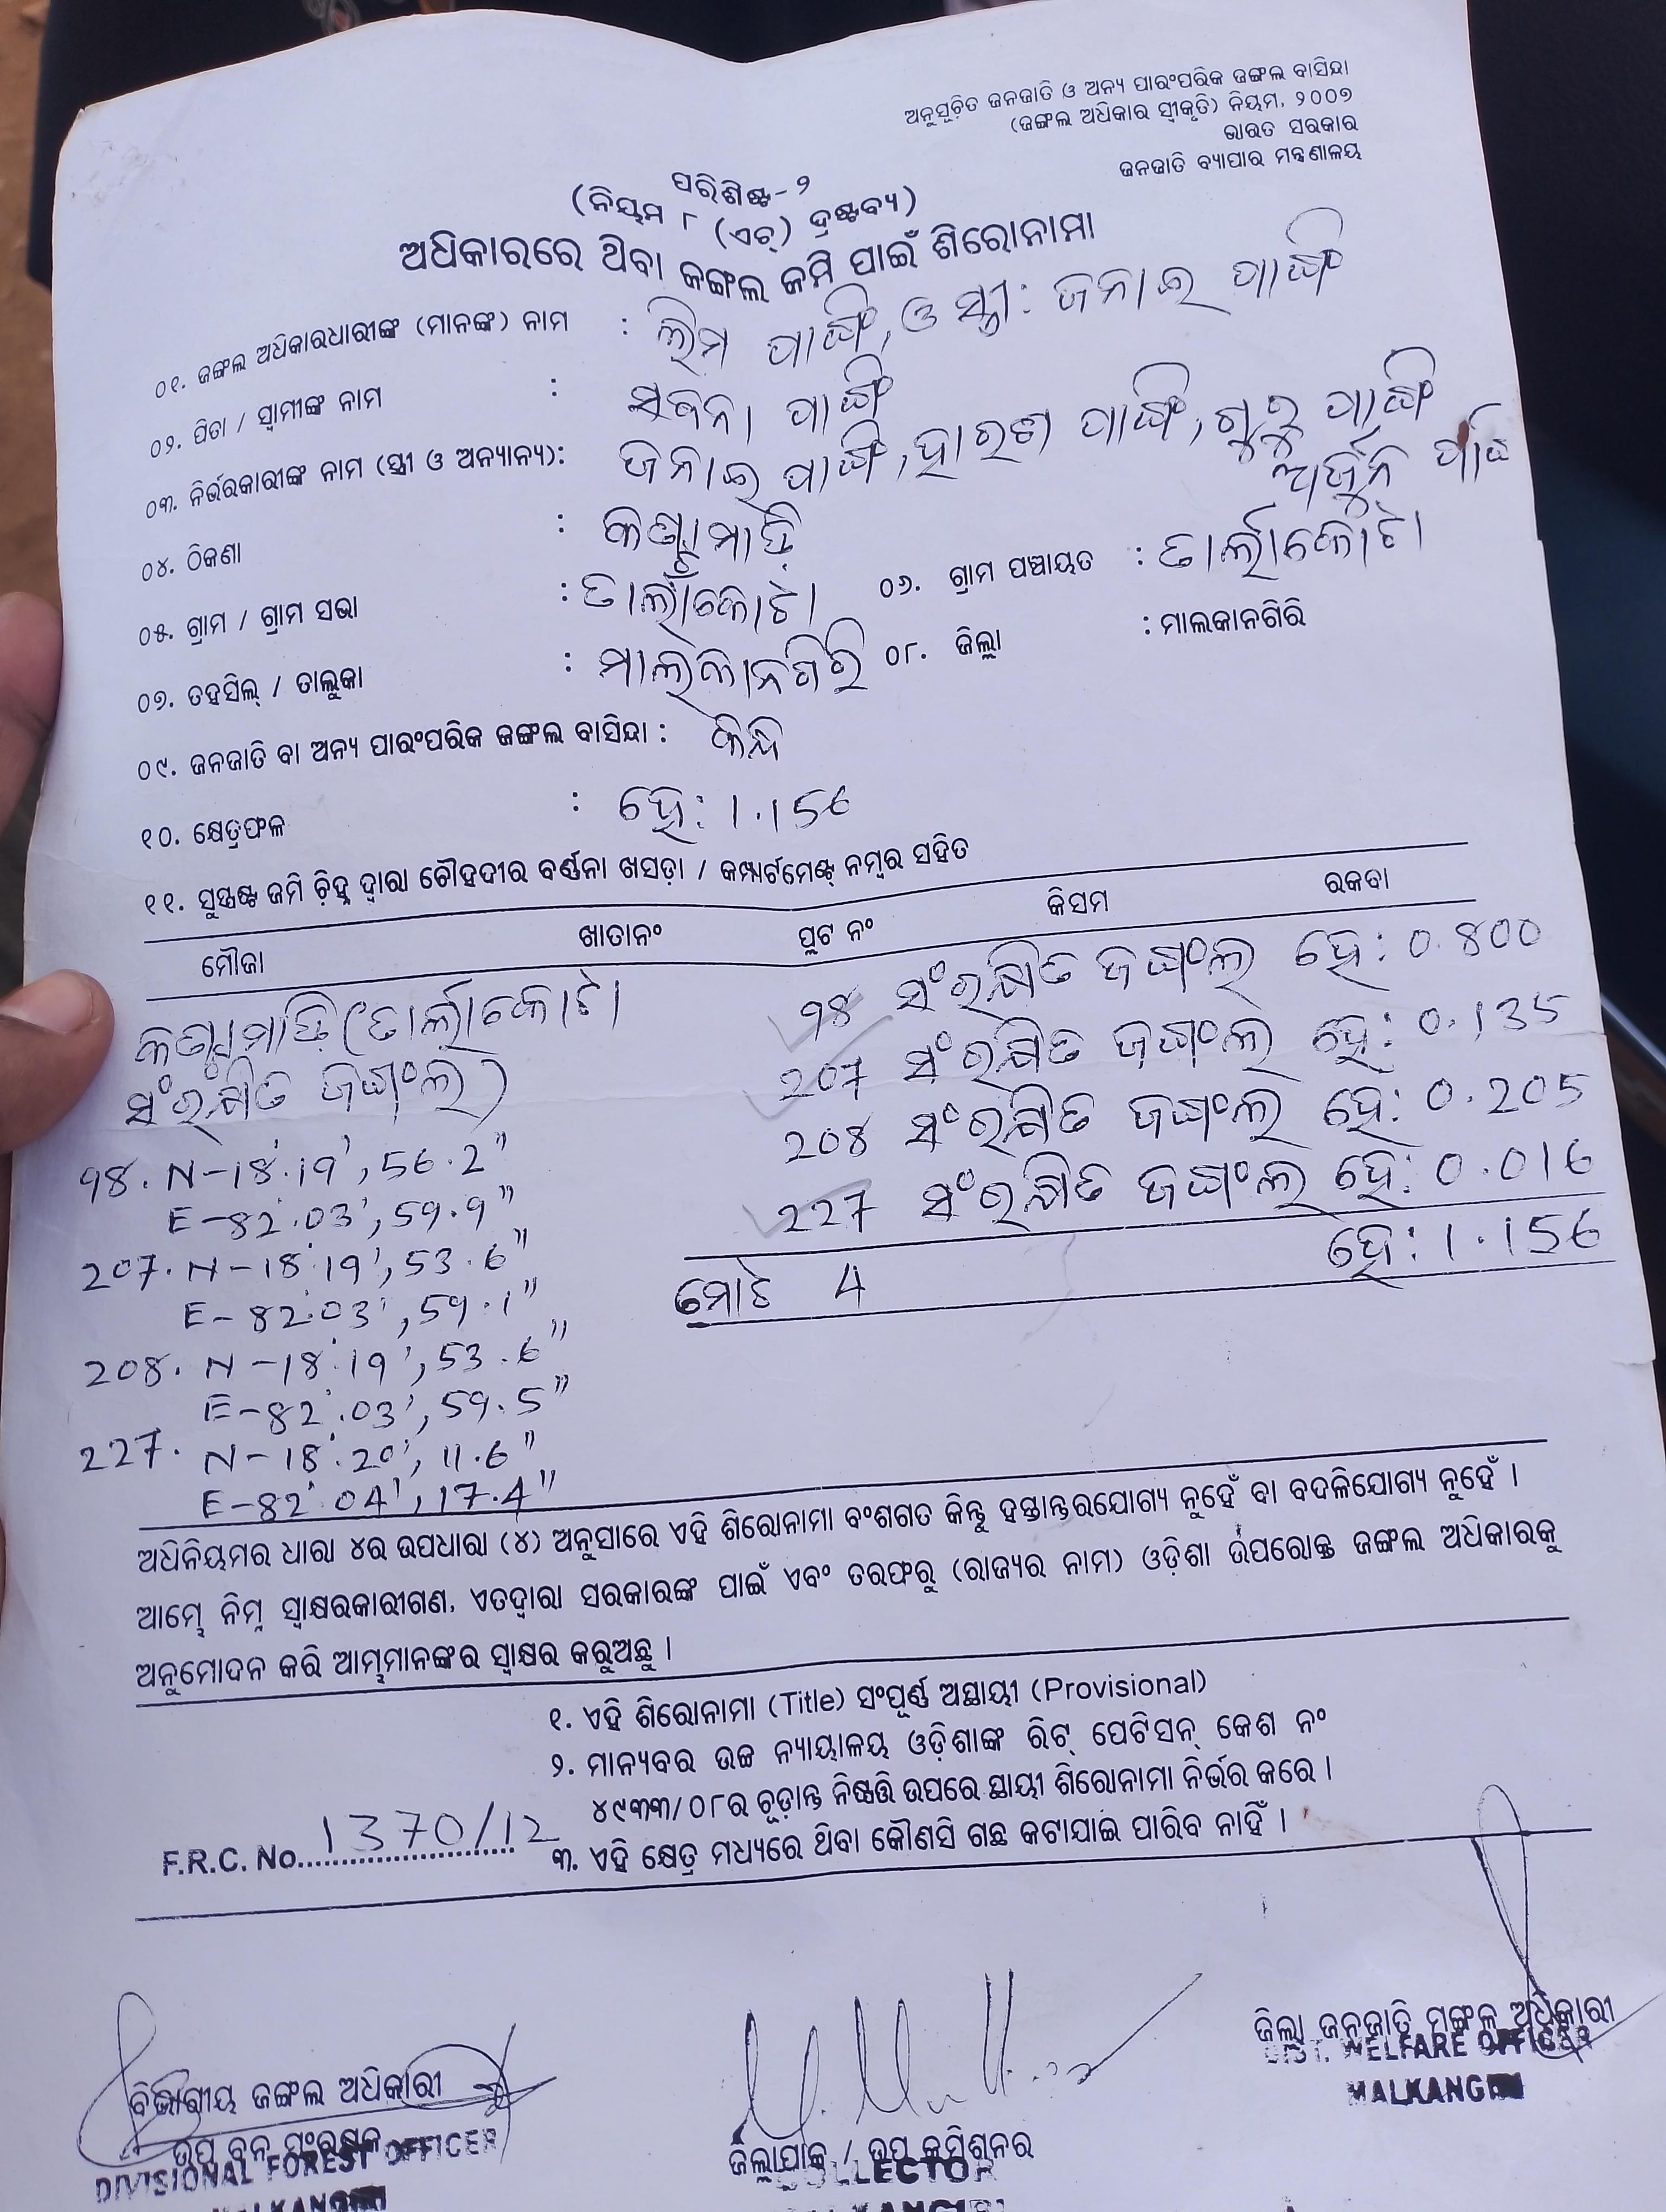 ଅନୁସୂଚିତ ଜନଜାତି ଓ ଅନ୍ୟ ପାରଂପରିକ ଜଙ୍ଗଲ ବାସିନ୍ଦା
(ଜଙ୍ଗଲ ଅଧିକାର ସ୍ୱୀକୃତି) ନିୟମ, ୨୦୦୭
ଭାରତ ସରକାର
ଜନଜାତି ବ୍ୟାପାର ମନ୍ତ୍ରଣାଳୟ
ପରିଶିଷ୍ଟ-୨
(ନିୟମ ୮ (ଏଚ୍) ଦ୍ରଷ୍ଟବ୍ୟ)
ଅଧିକାରରେ ଥିବା ଜଙ୍ଗଲ ଜମି ପାଇଁ ଶିରୋନାମା
୦୧. ଜଙ୍ଗଲ ଅଧିକାରଧାରୀଙ୍କ (ମାନଙ୍କ) ନାମ : ଲିମ ପାଙ୍ଗି, ଓ ସ୍ତ୍ରୀ: ଜନାଇ ପାଙ୍ଗି
୦୨. ପିତା / ସ୍ୱାମୀଙ୍କ ନାମ : ସବନା ପାଙ୍ଗି
୦୩. ନିର୍ଭରକାରୀଙ୍କ ନାମ (ସ୍ତ୍ରୀ ଓ ଅନ୍ୟାନ୍ୟ): ଜନାଇ ପାଙ୍ଗି, ପାଙ୍ଗି, ଗୁରୁ ପାଙ୍ଗି
ଅର୍ଜୁନ
୦୪. ଠିକଣା :
୦୫. ଗ୍ରାମ / ଗ୍ରାମ ସଭା : ତାର୍ଲାକୋଟା ୦୬. ଗ୍ରାମ ପଞ୍ଚାୟତ : ତାର୍ଲାକୋଟା
୦୭. ତହସିଲ୍ / ତାଲୁକା : ମାଲକାନଗିରି ୦୮. ଜିଲ୍ଲା : ମାଲକାନଗିରି
୦୯. ଜନଜାତି ବା ଅନ୍ୟ ପାରଂପରିକ ଜଙ୍ଗଲ ବାସିନ୍ଦା : କନ୍ଧ
୧୦. କ୍ଷେତ୍ରଫଳ : ହେ: 1.156
୧୧. ସୁସ୍ପଷ୍ଟ ଜମି ଚିହ୍ନ ଦ୍ୱାରା ଚୌହଦୀର ବର୍ଣ୍ଣନା ଖସଡ଼ା / କମ୍ପାର୍ଟମେଣ୍ଟ୍ ନମ୍ବର ସହିତ
ମୌଜା ଖାତାନଂ ପ୍ଲଟ ନଂ କିସମ ରକବା
(ତାର୍ଲାକୋଟା 98 ସଂରକ୍ଷିତ ଜଙ୍ଗଲ ହେ: 0.800
ସଂରକ୍ଷିତ ଜଙ୍ଗଲ) 207 ସଂରକ୍ଷିତ ଜଙ୍ଗଲ ହେ: 0.135
208 ସଂରକ୍ଷିତ ଜଙ୍ଗଲ ହେ: 0.205
227 ସଂରକ୍ଷିତ ଜଙ୍ଗଲ ହେ: 0.016
ମୋଟ 4 ହେ: 1.156
98. N-18°.19', 56.2"
E-82°.03', 59.9"
207. N-18°.19', 53.6"
E-82°.03', 59.1"
208. N-18°.19', 53.6"
E-82°.03', 59.5"
227. N-18°.20', 11.6"
E-82°.04', 17.4"
ଅଧିନିୟମର ଧାରା ୪ର ଉପଧାରା (୪) ଅନୁସାରେ ଏହି ଶିରୋନାମା ବଂଶଗତ କିନ୍ତୁ ହସ୍ତାନ୍ତରଯୋଗ୍ୟ ନୁହେଁ ବା ବଦଳିଯୋଗ୍ୟ ନୁହେଁ ।
ଆମ୍ଭେ ନିମ୍ନ ସ୍ୱାକ୍ଷରକାରୀଗଣ, ଏତଦ୍ୱାରା ସରକାରଙ୍କ ପାଇଁ ଏବଂ ତରଫରୁ (ରାଜ୍ୟର ନାମ) ଓଡ଼ିଶା ଉପରୋକ୍ତ ଜଙ୍ଗଲ ଅଧିକାରକୁ
ଅନୁମୋଦନ କରି ଆମ୍ଭମାନଙ୍କର ସ୍ୱାକ୍ଷର କରୁଅଛୁ ।
୧. ଏହି ଶିରୋନାମା (Title) ସଂପୂର୍ଣ୍ଣ ଅସ୍ଥାୟୀ (Provisional)
୨. ମାନ୍ୟବର ଉଚ୍ଚ ନ୍ୟାୟାଳୟ ଓଡ଼ିଶାଙ୍କ ରିଟ୍ ପେଟିସନ୍ କେଶ ନଂ
୪୯୩୩/୦୮ର ଚୂଡ଼ାନ୍ତ ନିଷ୍ପତ୍ତି ଉପରେ ସ୍ଥାୟୀ ଶିରୋନାମା ନିର୍ଭର କରେ ।
୩. ଏହି କ୍ଷେତ୍ର ମଧ୍ୟରେ ଥିବା କୌଣସି ଗଛ କଟାଯାଇ ପାରିବ ନାହିଁ ।
F.R.C. No. 1370/12
ଜିଲ୍ଲା ଜନଜାତି ମଙ୍ଗଳ ଅଧିକାରୀ
DIST. WELFARE OFFICER
MALKANGIRI
ବିଭାଗୀୟ ଜଙ୍ଗଲ ଅଧିକାରୀ
ଉପ ବନ ସଂରକ୍ଷକ
DIVISIONAL FOREST OFFICER
MALKANGIRI
ଜିଲ୍ଲାପାଳ / ଉପ କମିଶନର
COLLECTOR
MALKANGIRI